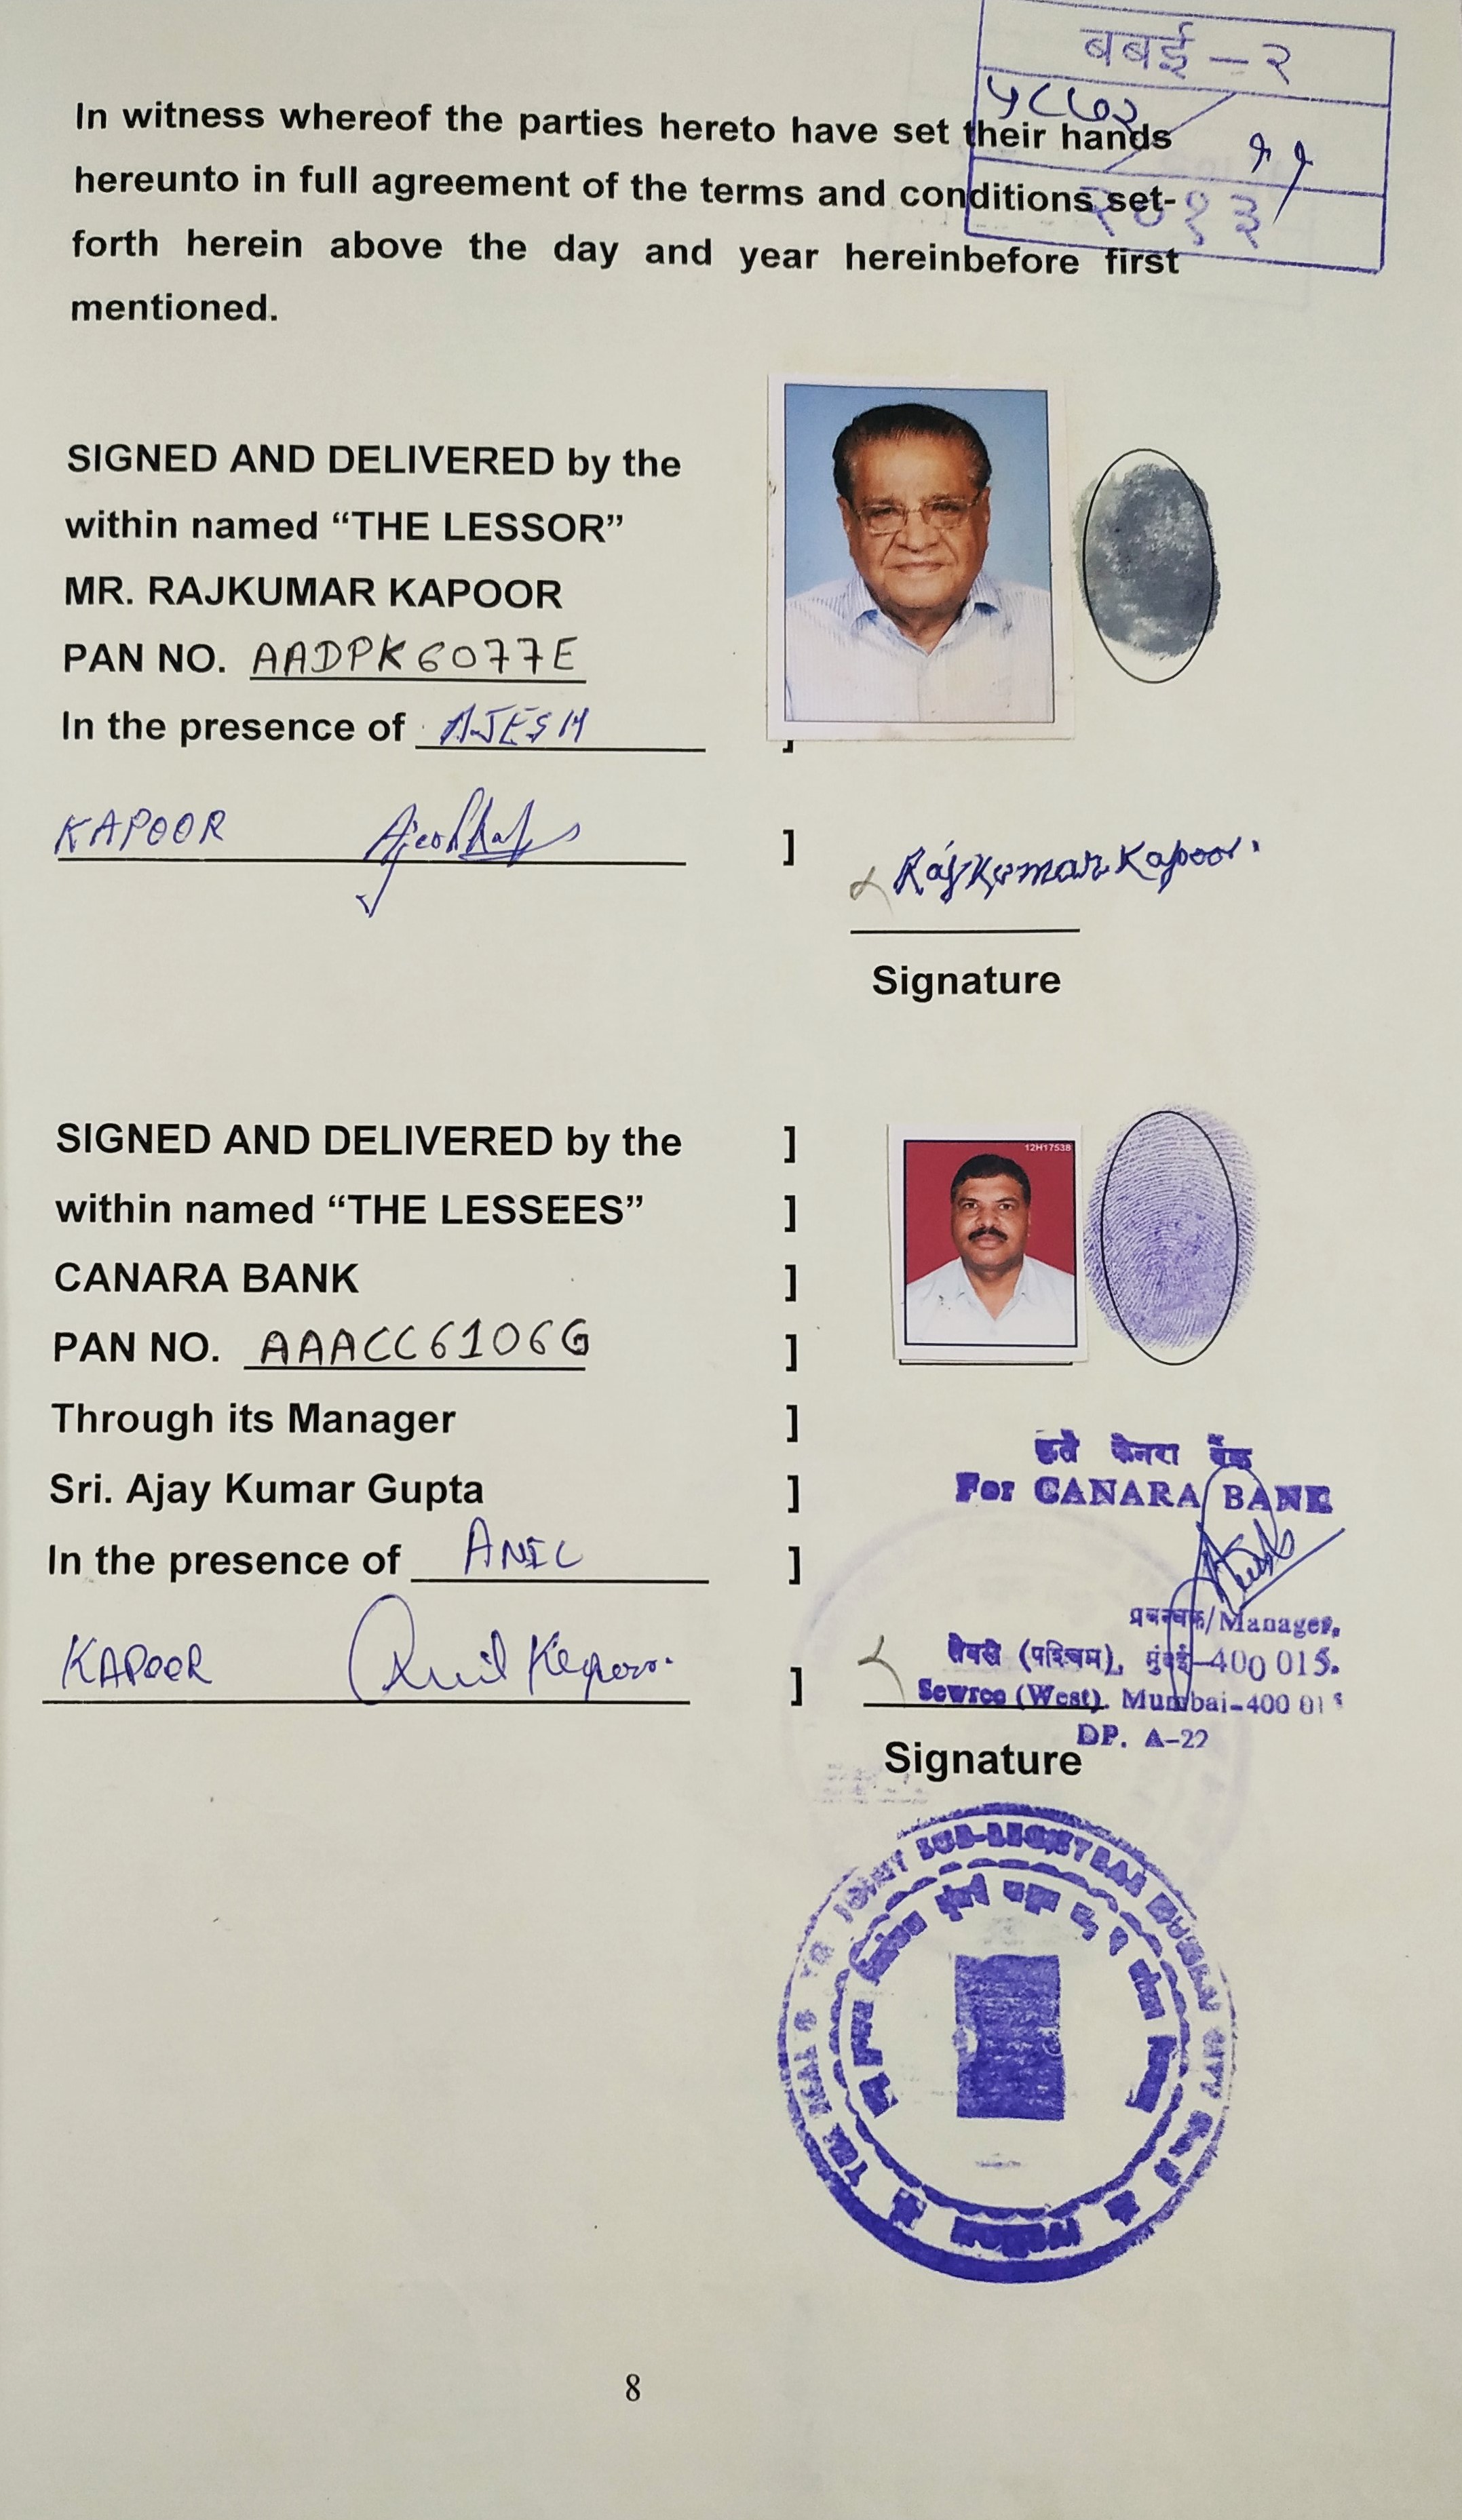 बबई - २
५८७२
११
२०१३
In witness whereof the parties hereto have set their hands
hereunto in full agreement of the terms and conditions set-
forth herein above the day and year hereinbefore first
mentioned.
SIGNED AND DELIVERED by the
within named “THE LESSOR”
MR. RAJKUMAR KAPOOR
PAN NO. AADPK6077E
In the presence of AJESH ]
KAPOOR Ajesh Kapoor ]
Rajkumar Kapoor
Signature
SIGNED AND DELIVERED by the ]
12H17538
within named “THE LESSEES” ]
CANARA BANK ]
PAN NO. AAACC6106G ]
Through its Manager ]
कृते केनरा बैंक
Sri. Ajay Kumar Gupta ]
For CANARA BANK
In the presence of ANIL ]
प्रबन्धक/Manager,
KAPOOR Anil Kapoor ]
सेवरी (पश्चिम), मुंबई-400 015.
Sewree (West). Mumbai-400 01
DP. A-22
Signature
JOINT SUB-REGISTRAR
8